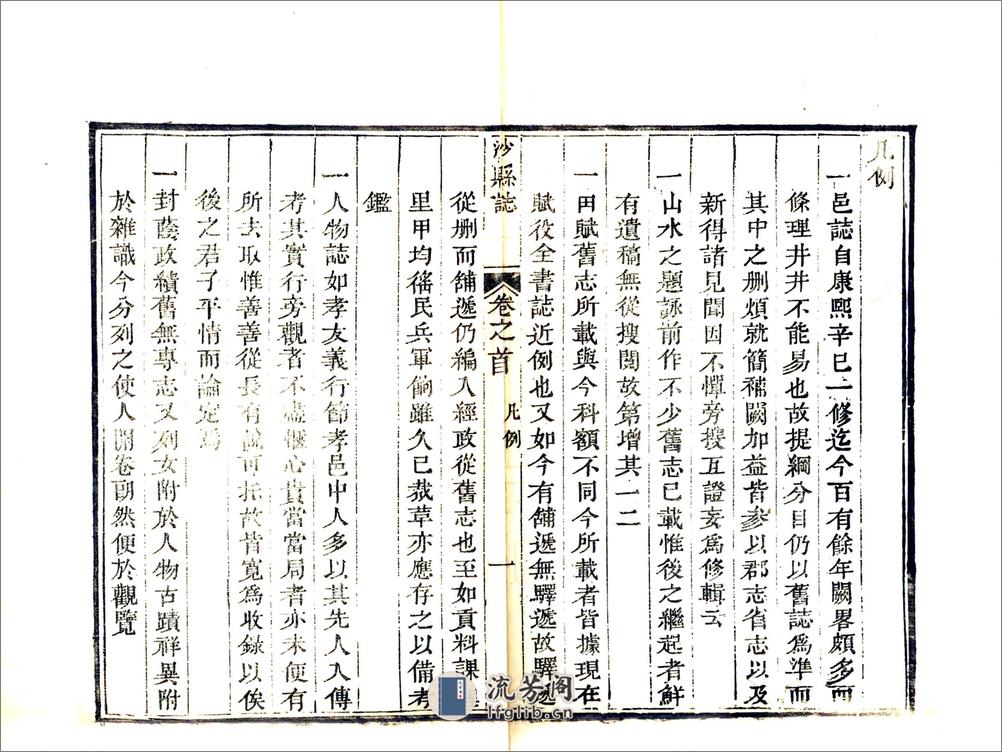 凡例
一邑誌自康熙辛巳一修迄今百有餘年闕畧頗多而
條理井井不能易也故提綱分目仍以舊誌為準而
其中之刪煩就簡補闕加益皆參以郡志省志以及
新得諸見聞因不憚旁搜互證妄為修輯云
一山水之題詠前作不少舊志已載惟後之繼起者鮮
有遺稿無從搜閱故第增其一二
一田賦舊志所載與今科額不同今所載者皆據現在
賦役全書誌近例也又如今有舖遞無驛遞故驛遞
沙縣誌
卷之首
凡例
一
從刪而舖遞仍編入經政從舊志也至如貢料課
里甲均徭民兵軍餉雖久已裁草亦應存之以備考
鑑
一人物誌如孝友義行節孝邑中人多以其先人入傳
考其實行旁觀者不盡愜心貴當當局者亦未便有
所去取惟善善從長有說可托故皆寬為收録以俟
後之君子平情而論定焉
一封蔭政績舊無專志又列女附於人物古蹟祥異附
於雜識今分列之使人開卷朗然便於觀覽
流芳阁
lfglib.cn